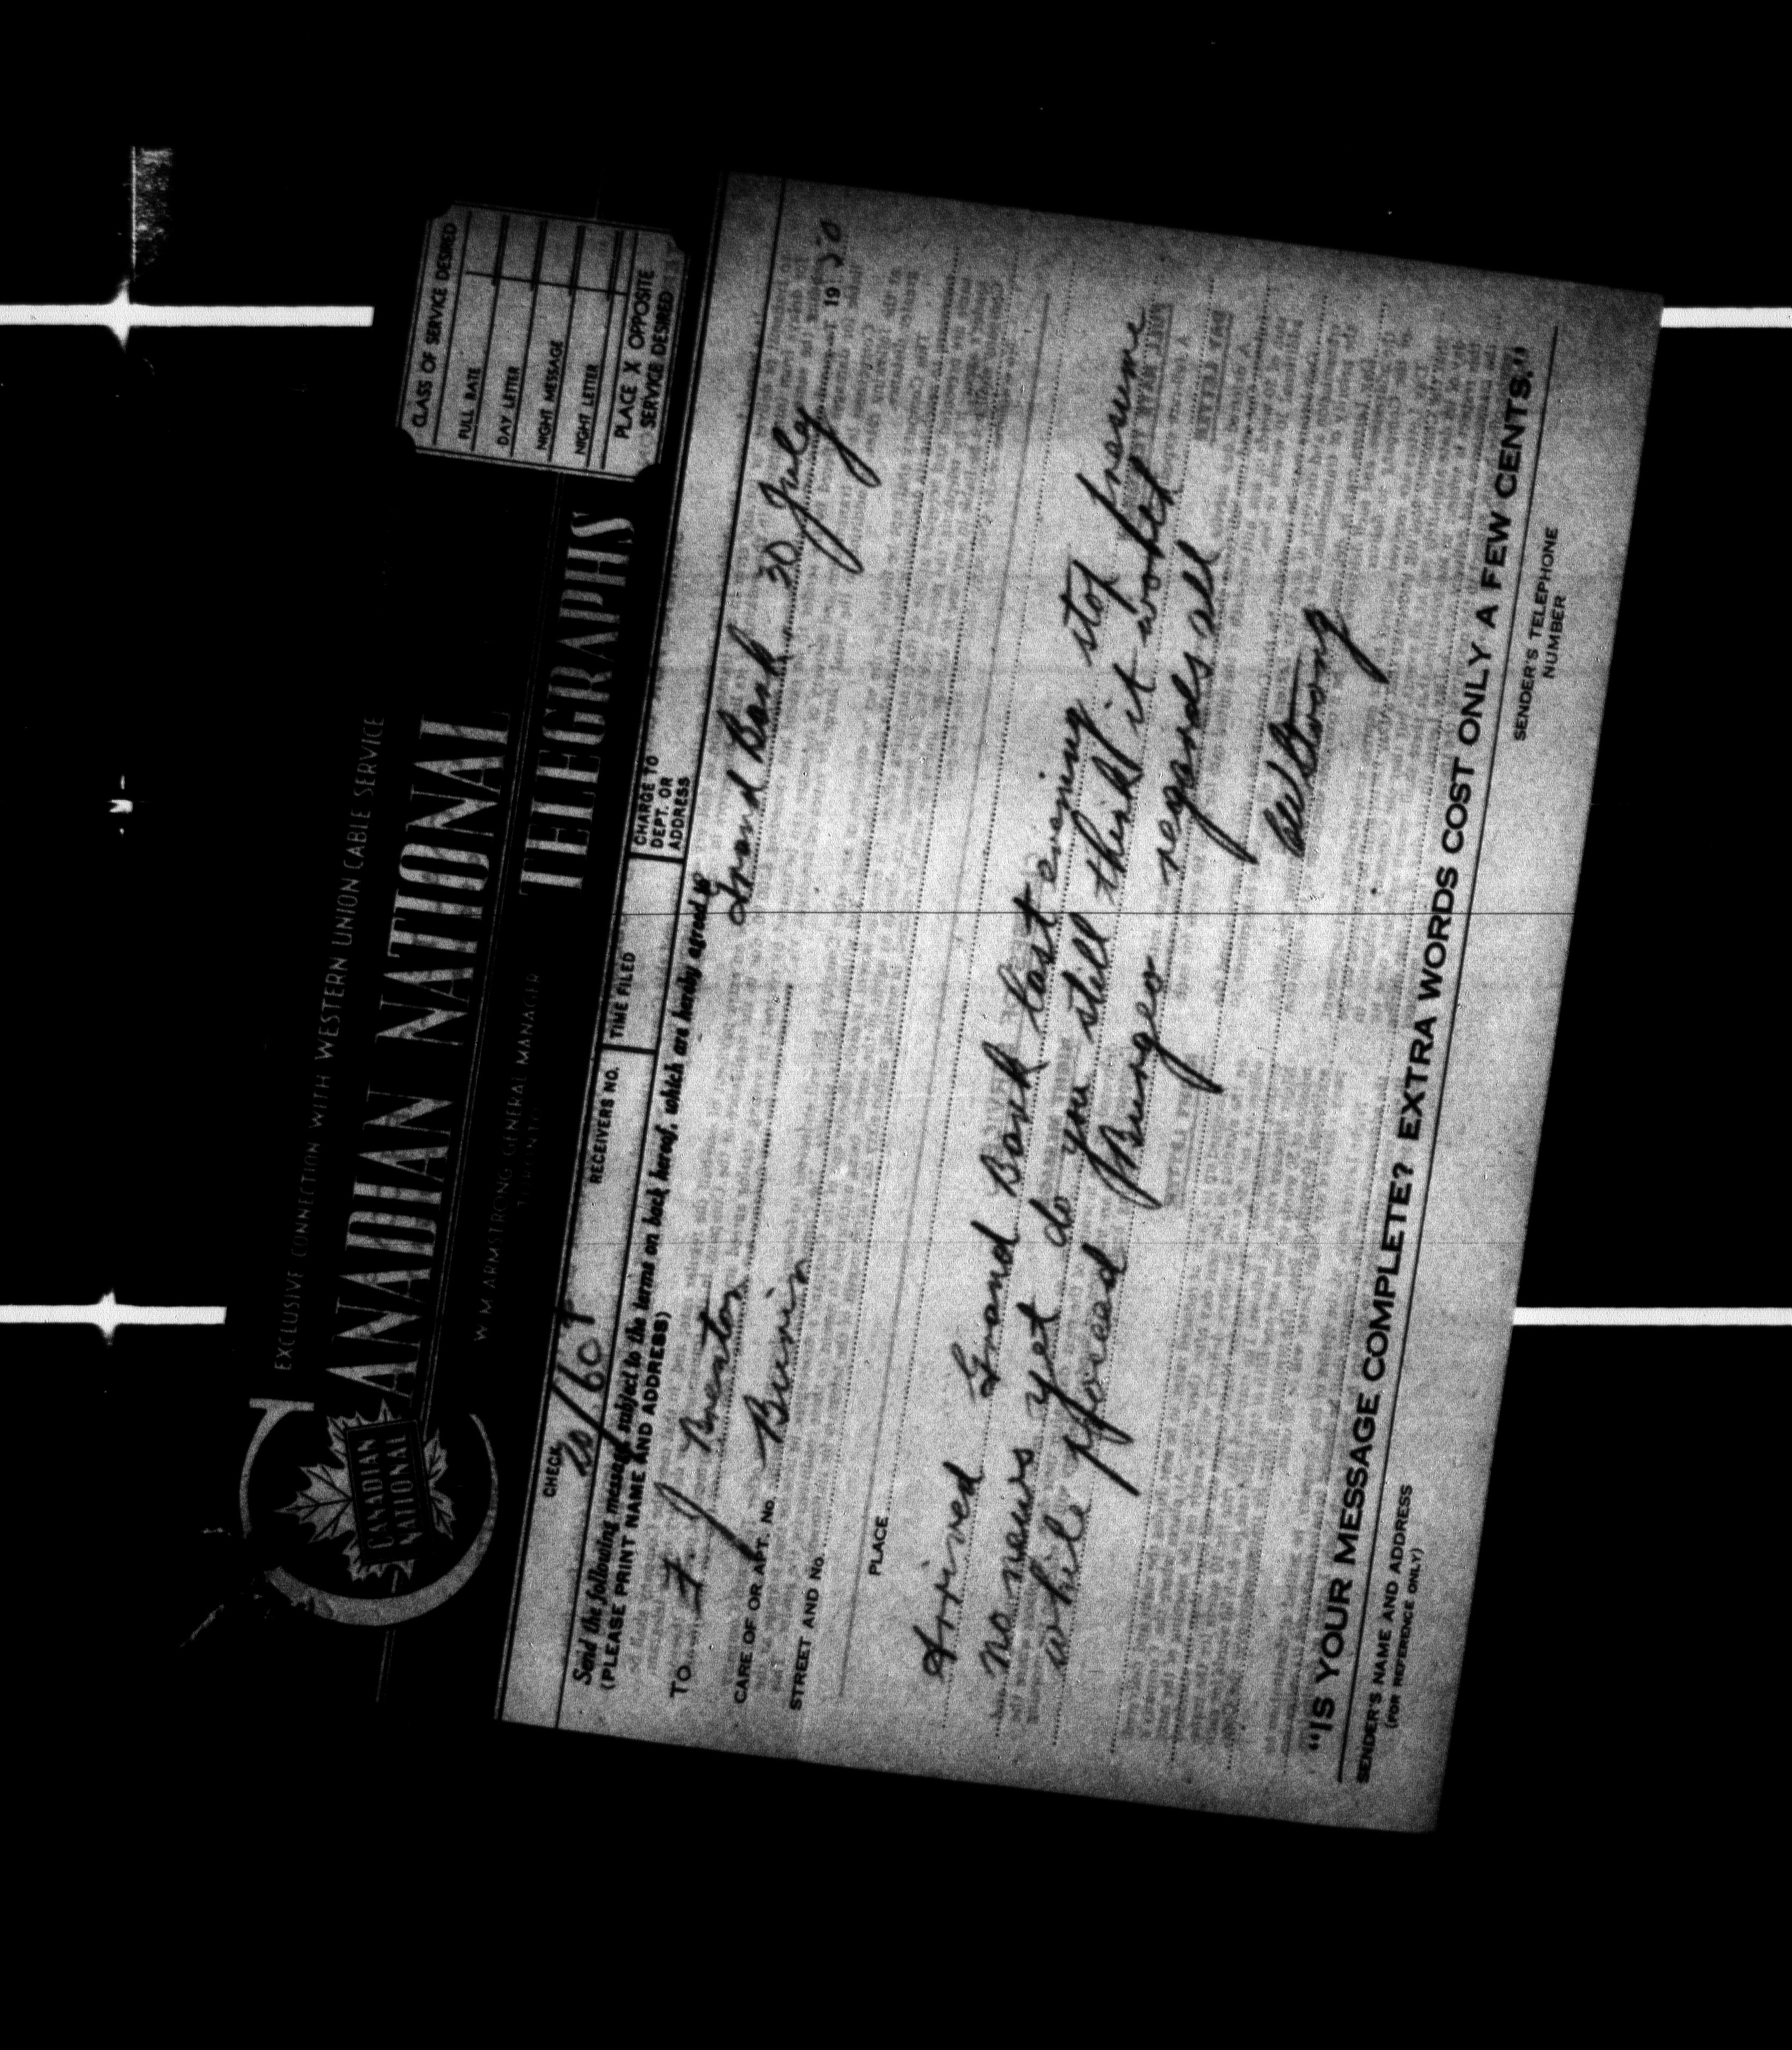 EXCLUSIVE CONNECTION WITH WESTERN UNION CABLE SERVICE
CANADIAN NATIONAL
CANADIAN NATIONAL
TELEGRAPHS
W. M. ARMSTRONG, GENERAL MANAGER
CLASS OF SERVICE DESIRED
FULL RATE
DAY LETTER
NIGHT MESSAGE
NIGHT LETTER
PLACE X OPPOSITE
SERVICE DESIRED
CHECK
RECEIVERS NO.
TIME FILED
CHARGE TO
DEPT. OR
ADDRESS
Send the following message, subject to the terms on back hereof, which are hereby agreed to
(PLEASE PRINT NAME AND ADDRESS)
Grand Bank 30 July 19
TO F. J. Breaton
CARE OF OR APT. No.
Burin
STREET AND No.
PLACE
Arrived Grand Bank last evening stop presume
no news yet do you still think it
while placed Burgeo regards all
"IS YOUR MESSAGE COMPLETE? EXTRA WORDS COST ONLY A FEW CENTS."
SENDER'S NAME AND ADDRESS
(FOR REFERENCE ONLY)
SENDER'S TELEPHONE
NUMBER